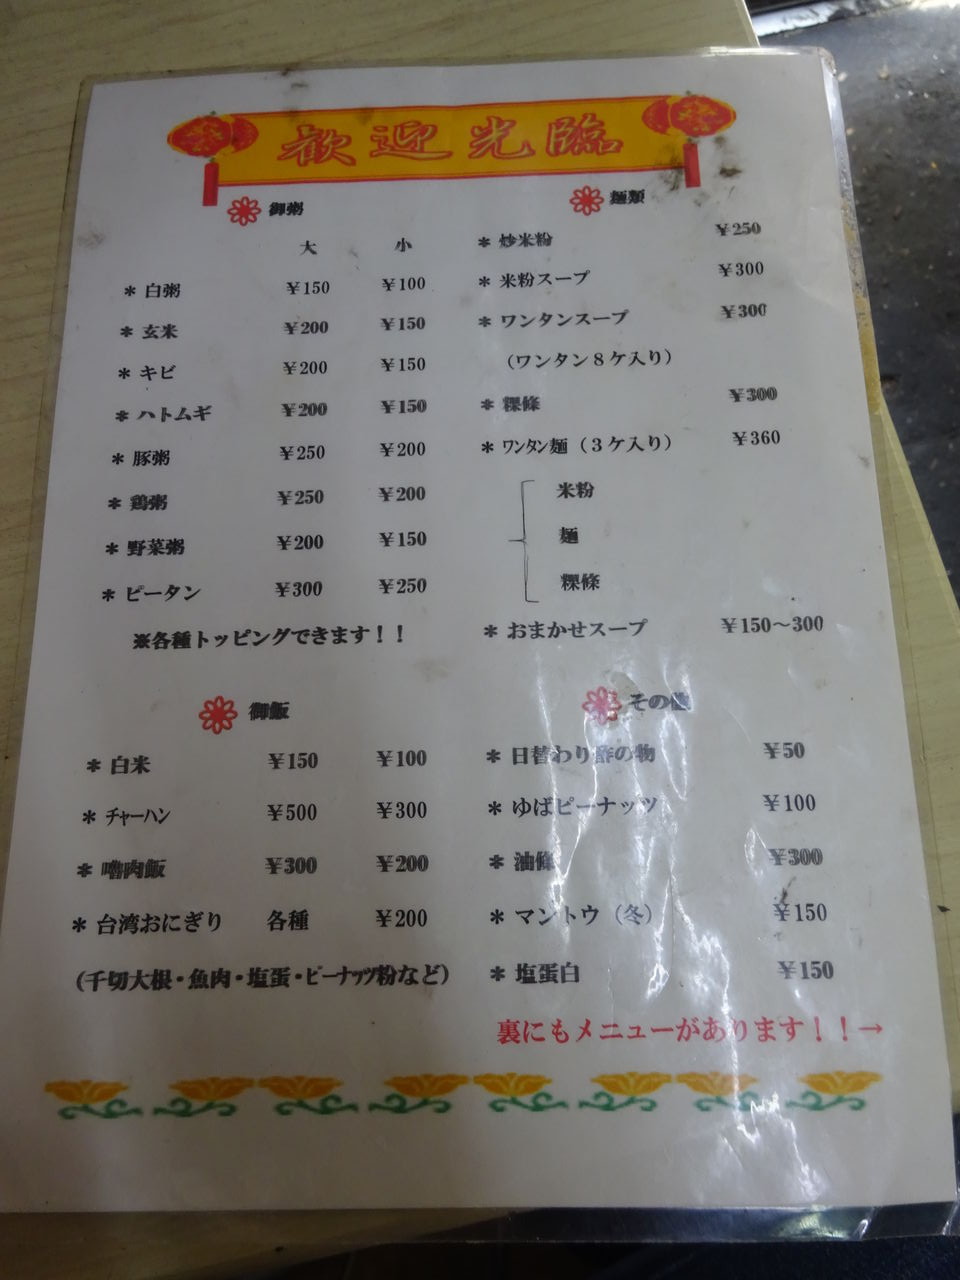 歡迎光臨
御粥
大 小
＊白粥 ￥150 ￥100
＊玄米 ￥200 ￥150
＊キビ ￥200 ￥150
＊ハトムギ ￥200 ￥150
＊豚粥 ￥250 ￥200
＊鶏粥 ￥250 ￥200
＊野菜粥 ￥200 ￥150
＊ピータン ￥300 ￥250
※各種トッピングできます！！
御飯
＊白米 ￥150 ￥100
＊チャーハン ￥500 ￥300
＊嚕肉飯 ￥300 ￥200
＊台湾おにぎり 各種 ￥200
(千切大根・魚肉・塩蛋・ピーナッツ粉など)
麺類
＊炒米粉 ￥250
＊米粉スープ ￥300
＊ワンタンスープ ￥300
（ワンタン８ケ入り）
＊粿條 ￥300
＊ワンタン麺（３ケ入り） ￥360
米粉
麺
粿條
＊おまかせスープ ￥150～300
その他
＊日替わり酢の物 ￥50
＊ゆばピーナッツ ￥100
＊油條 ￥300
＊マントウ（冬） ￥150
＊塩蛋白 ￥150
裏にもメニューがあります！！→